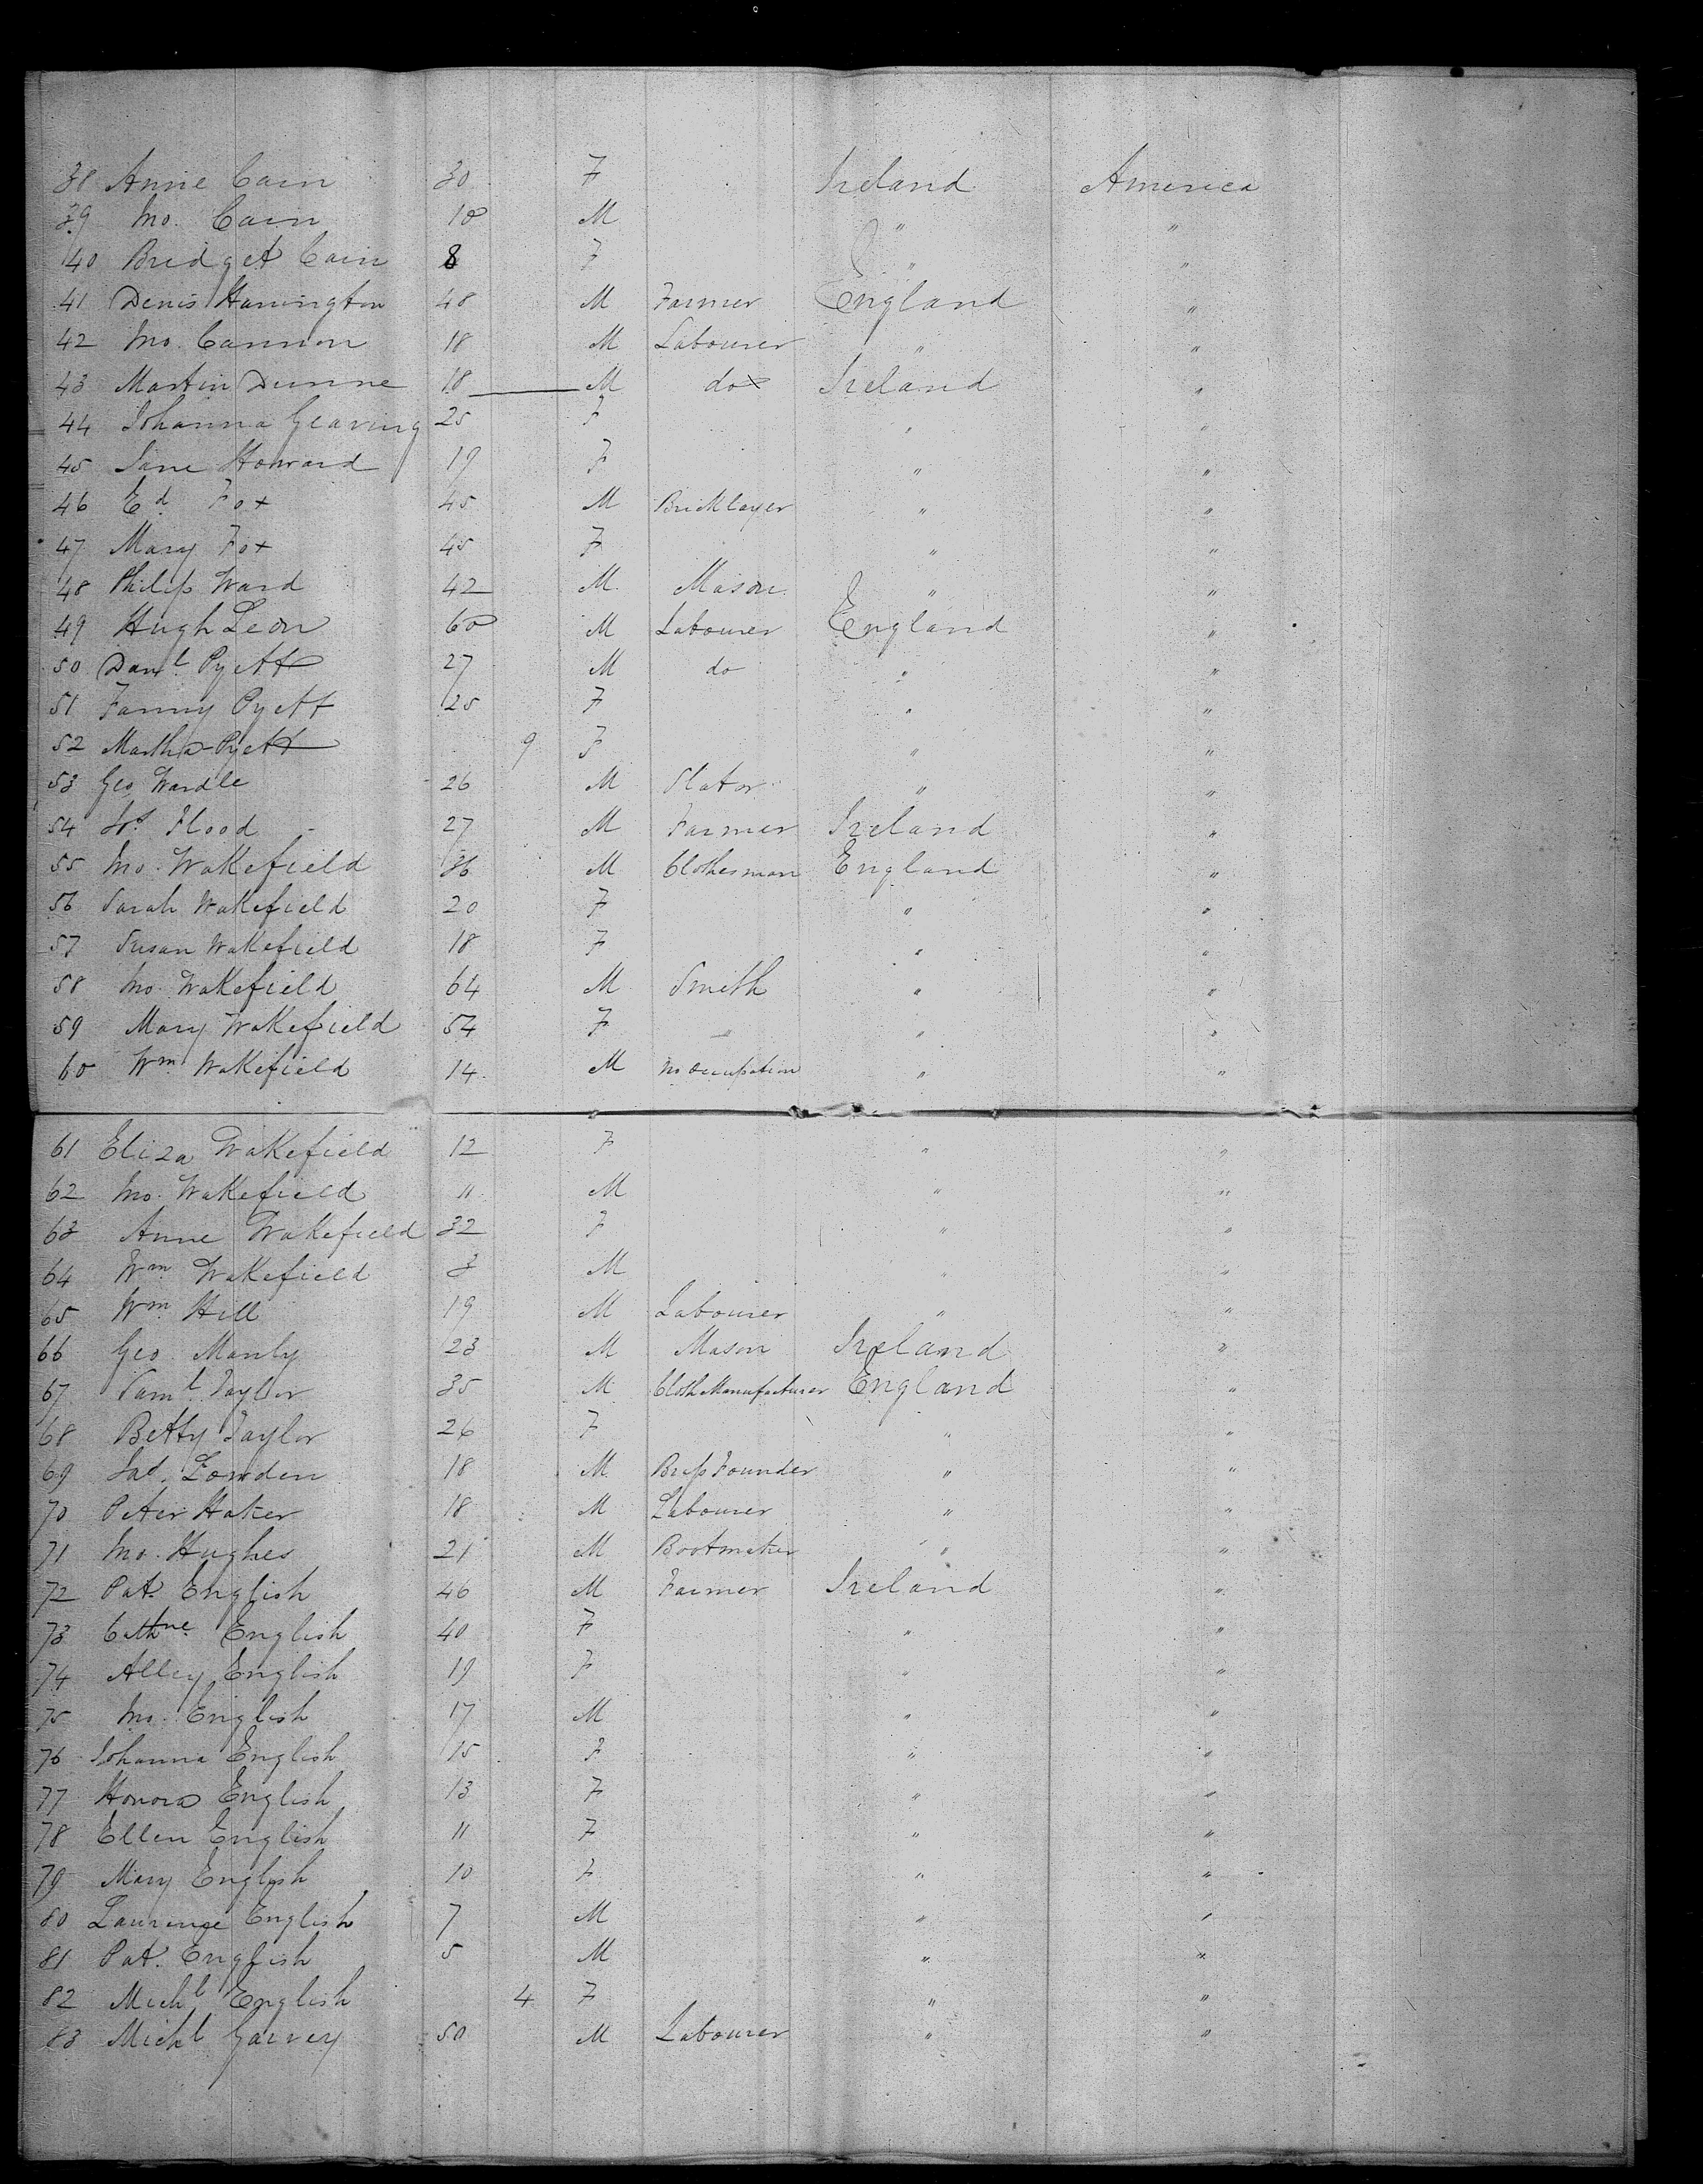 38 Anne Cain 30 F Ireland America
39 Jno. Cain 10 M " "
40 Bridget Cain 8 F " "
41 Denis Harrington 48 M Farmer England "
42 Jno. Cannon 18 M Labourer " "
43 Martin Dunne 18 M do Ireland "
44 Johanna Gearing 25 F " "
45 Jane Howard 19 F " "
46 Ed Fox 45 M Bricklayer " "
47 Mary Fox 45 F " "
48 Philip Ward 42 M Mason " "
49 Hugh Leon 60 M Labourer England "
50 Danl Pyett 27 M do " "
51 Fanny Pyett 25 F " "
52 Martha Pyett 9 F " "
53 Geo Wardle 26 M Slator " "
54 Flood 27 M Farmer Ireland "
55 Jno. Wakefield 36 M Clothesman England "
56 Sarah Wakefield 20 F " "
57 Susan Wakefield 18 F " "
58 Jno. Wakefield 64 M Smith " "
59 Mary Wakefield 54 F " " "
60 Wm Wakefield 14 M no occupation " "
61 Eliza Wakefield 12 F " "
62 Jno. Wakefield 11 M " "
63 Anne Wakefield 32 F " "
64 Wm Wakefield 3 M " "
65 Wm Hill 19 M Labourer " "
66 Geo Manly 23 M Mason Ireland "
67 Saml Taylor 35 M Cloth Manufacturer England "
68 Betty Taylor 26 F " "
69 Jas. Lowden 18 M Founder " "
70 Peter Haker 18 M Labourer " "
71 Jno. Hughes 21 M Bootmaker " "
72 Pat. English 46 M Farmer Ireland "
73 Cathne English 40 F " "
74 Alley English 19 F " "
75 Jno. English 17 M " "
76 Johanna English 15 F " "
77 Honora English 13 F " "
78 Ellen English 11 F " "
79 Mary English 10 F " "
80 Laurence English 7 M " "
81 Pat. English 5 M " "
82 Michl English 4 F " "
83 Michl Garvey 50 M Labourer " "